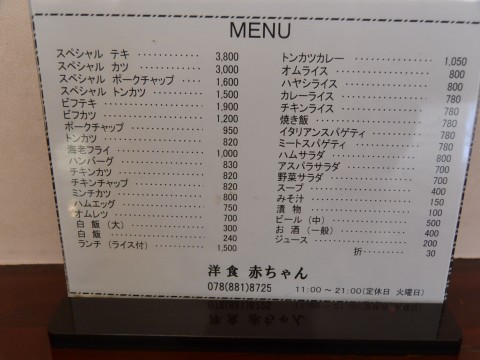 MENU
スペシャル テキ ………… 3,800
スペシャル カツ ………… 3,000
スペシャル ポークチャップ … 1,600
スペシャル トンカツ ……… 1,500
ビフテキ ………………… 1,900
ビフカツ ………………… 1,200
ポークチャップ …………… 950
トンカツ ………………… 820
海老フライ ……………… 1,000
ハンバーグ ……………… 830
チキンカツ ……………… 820
チキンチャップ …………… 820
ミンチカツ ……………… 800
ハムエッグ ……………… 750
オムレツ ………………… 700
白 飯 (大) ……………… 300
白 飯 …………………… 240
ランチ (ライス付) ………… 1,500
トンカツカレー …………… 1,050
オムライス ……………… 800
ハヤシライス …………… 800
カレーライス …………… 780
チキンライス …………… 780
焼き飯 ………………… 780
イタリアンスパゲティ ……… 780
ミートスパゲティ ………… 780
ハムサラダ ……………… 800
アスパラサラダ …………… 700
野菜サラダ ……………… 700
スープ ………………… 400
みそ汁 ………………… 150
漬 物 ………………… 100
ビール (中) ……………… 500
お 酒 (一般) …………… 400
ジュース ………………… 200
折 ……… 30
洋 食 赤ちゃん
078(881)8725 11:00 ～ 21:00(定休日 火曜日)